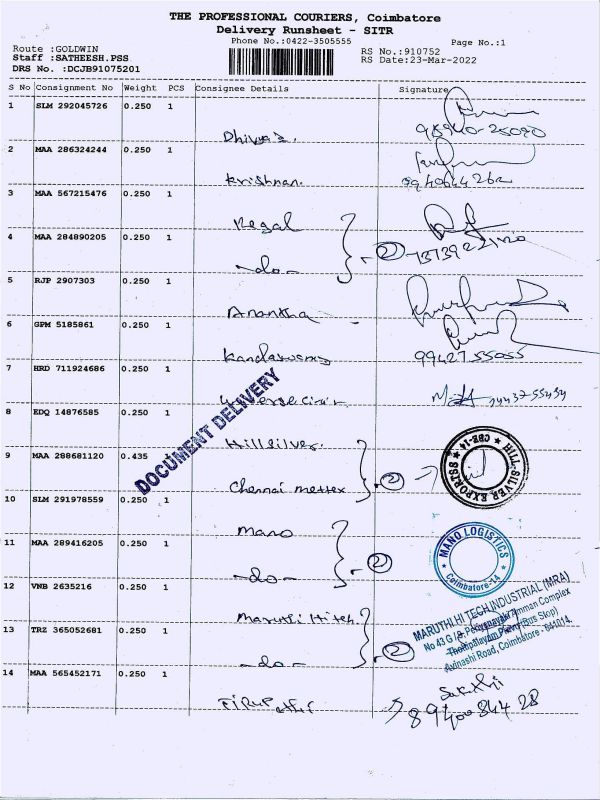 THE PROFESSIONAL COURIERS, Coimbatore
Delivery Runsheet - SITR
Phone No.:0422-3505555
Page No.:1
Route :GOLDWIN
Staff :SATHEESH.PSS
DRS No. :DCJB91075201
RS No.:910752
RS Date:23-Mar-2022
S No Consignment No Weight PCS Consignee Details Signature
1 SLM 292045726 0.250 1
2 MAA 286324244 0.250 1
Krishnan.
3 MAA 567215476 0.250 1
Regal
4 MAA 284890205 0.250 1
-do- 2
5 RJP 2907303 0.250 1
Anantha
6 GPM 5185861 0.250 1
Kandaswamy 99427 55055
7 HRD 711924686 0.250 1
8 EDQ 14876585 0.250 1
Hillsilver.
9 MAA 288681120 0.435 1
Chennai mettex 2
10 SLM 291978559 0.250 1
Mano
11 MAA 289416205 0.250 1
-do- 2
12 VNB 2635216 0.250 1
Maruti Hitech
13 TRZ 365052681 0.250 1
-do- 2
14 MAA 565452171 0.250 1
DOCUMENT DELIVERY
HILL-SILVER EXPORTSS
CBE-14
MANO LOGISTICS
Coimbatore-14
MARUTHI HI TECH INDUSTRIAL (MRA)
Avinashi Road, Coimbatore - 641014.